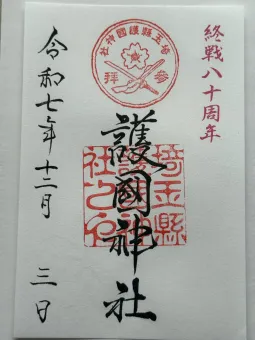 終戦八十周年
埼玉縣護國神社
參拜
護國神社
埼玉縣護國神社之印
令和七年十二月三日